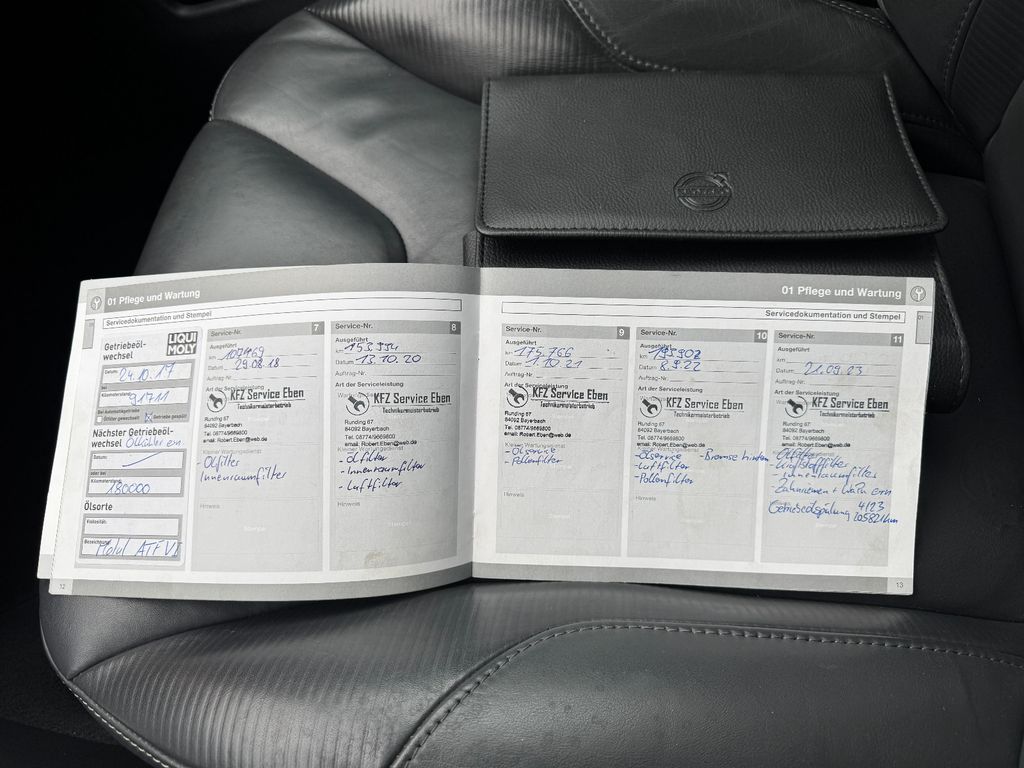 01 Pflege und Wartung
Servicedokumentation und Stempel
Getriebeöl-
wechsel
LIQUI
MOLY
Datum:
24.10.17
bei
Kilometerstand:
91711
Bei Automatikgetriebe
Ölfilter gewechselt
Getriebe gespült
Nächster Getriebeöl-
wechsel
Datum:
oder bei
Kilometerstand:
180000
Ölsorte
Viskosität:
Bezeichnung:
ATF VI
12
Service-Nr. 7
Ausgeführt
km 107469
Datum 29.08.18
Auftrag-Nr.
Art der Serviceleistung
KFZ Service Eben
Technikermeisterbetrieb
Runding 67
84092 Bayerbach
Tel. 08774/9669800
email: Robert.Eben@web.de
Kleiner Wartungsdienst
- Ölfilter
Innenraumfilter
Hinweis
Stempel
Service-Nr. 8
Ausgeführt
Datum 13.10.20
Auftrag-Nr.
Art der Serviceleistung
KFZ Service Eben
Technikermeisterbetrieb
Runding 67
84092 Bayerbach
Tel. 08774/9669800
email: Robert.Eben@web.de
- Ölfilter
- Innenraumfilter
- Luftfilter
Hinweis
Stempel
01 Pflege und Wartung
Servicedokumentation und Stempel
01
Service-Nr. 9
Ausgeführt
km 175.766
Datum 1.10.21
Auftrag-Nr.
Art der Serviceleistung
KFZ Service Eben
Technikermeisterbetrieb
Runding 67
84092 Bayerbach
Tel. 08774/9669800
email: Robert.Eben@web.de
Kleiner Wartungsdienst
- Ölservice
- Pollenfilter
Hinweis
Service-Nr. 10
Ausgeführt
km 195902
Datum 8.9.22
Auftrag-Nr.
Art der Serviceleistung
KFZ Service Eben
Technikermeisterbetrieb
Runding 67
84092 Bayerbach
Tel. 08774/9669800
email: Robert.Eben@web.de
- Ölservice - Bremse hinten
- Luftfilter
- Pollenfilter
Hinweis
Service-Nr. 11
Ausgeführt
km
Datum 21.09.23
Auftrag-Nr.
Art der Serviceleistung
KFZ Service Eben
Technikermeisterbetrieb
Runding 67
84092 Bayerbach
Tel. 08774/9669800
email: Robert.Eben@web.de
- Ölfilter
- Kraftstofffilter
- Innenraumfilter
Zahnriemen +
Getriebeölspülung 4/23
205821km
13